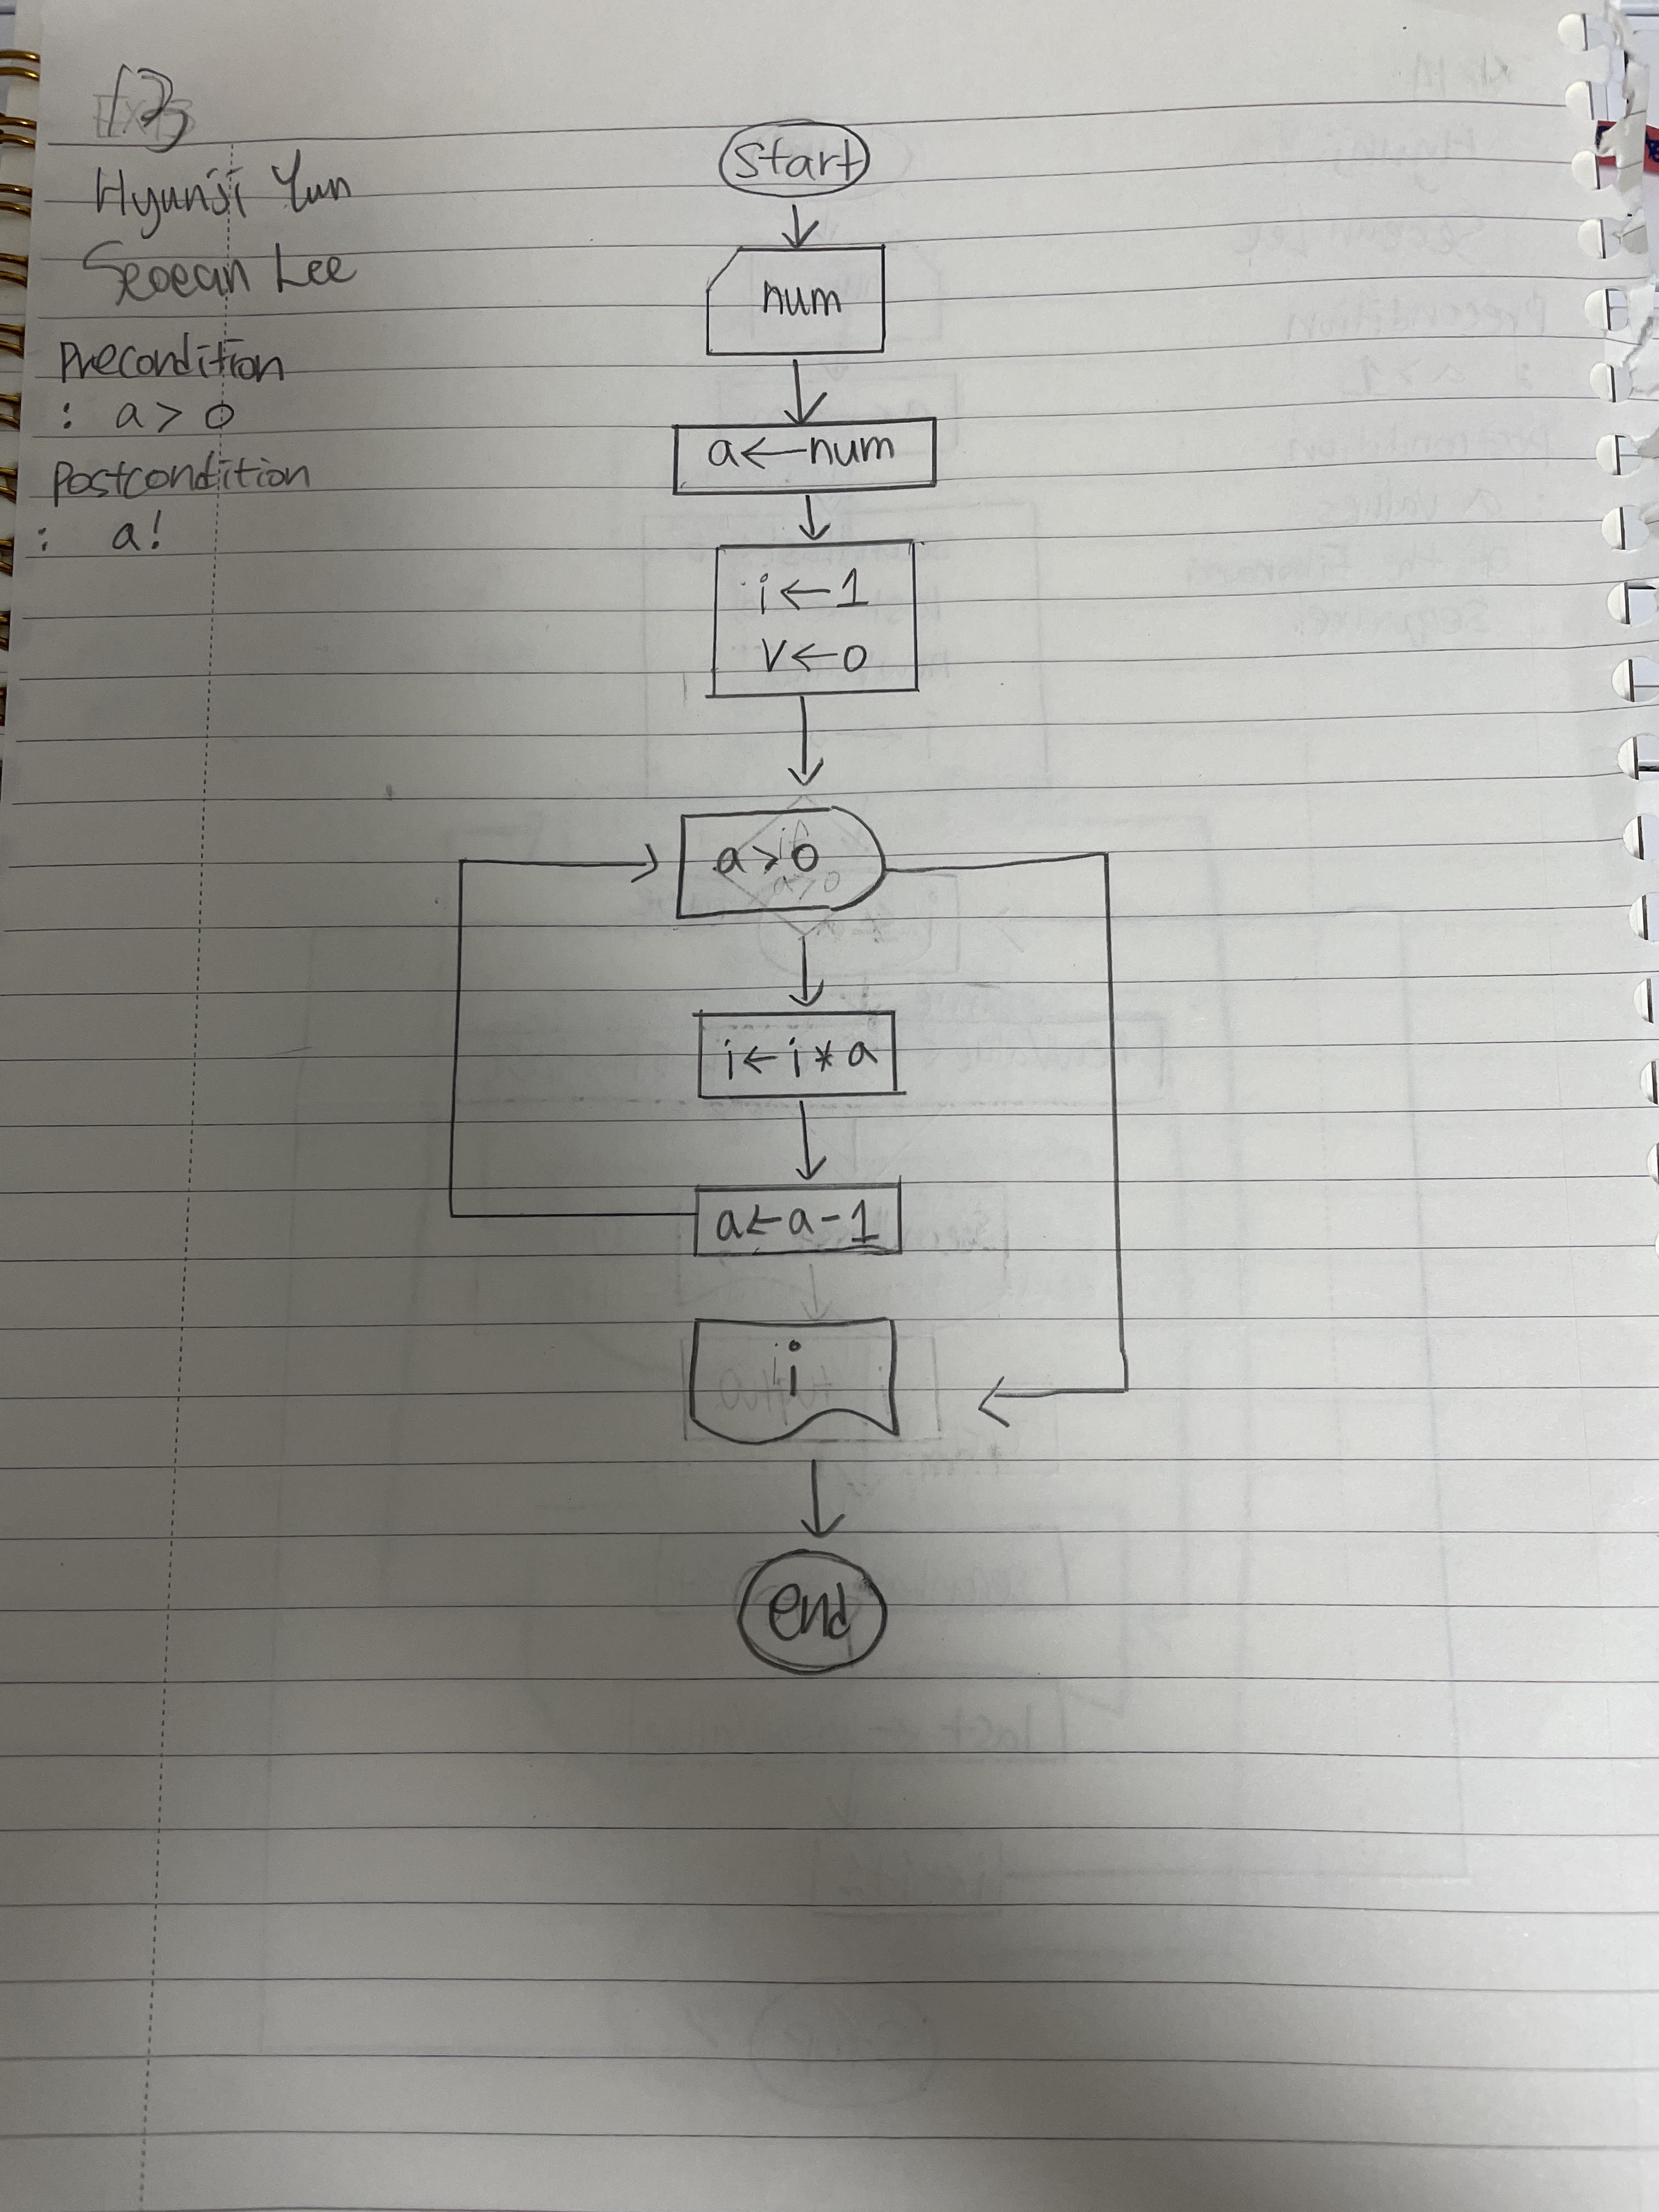 13
Hyunji Yun
Seoean Lee
Precondition
: a > 0
Postcondition
: a!
Start
num
a ← num
i ← 1
V ← 0
a > 0
i ← i * a
a ← a - 1
i
end